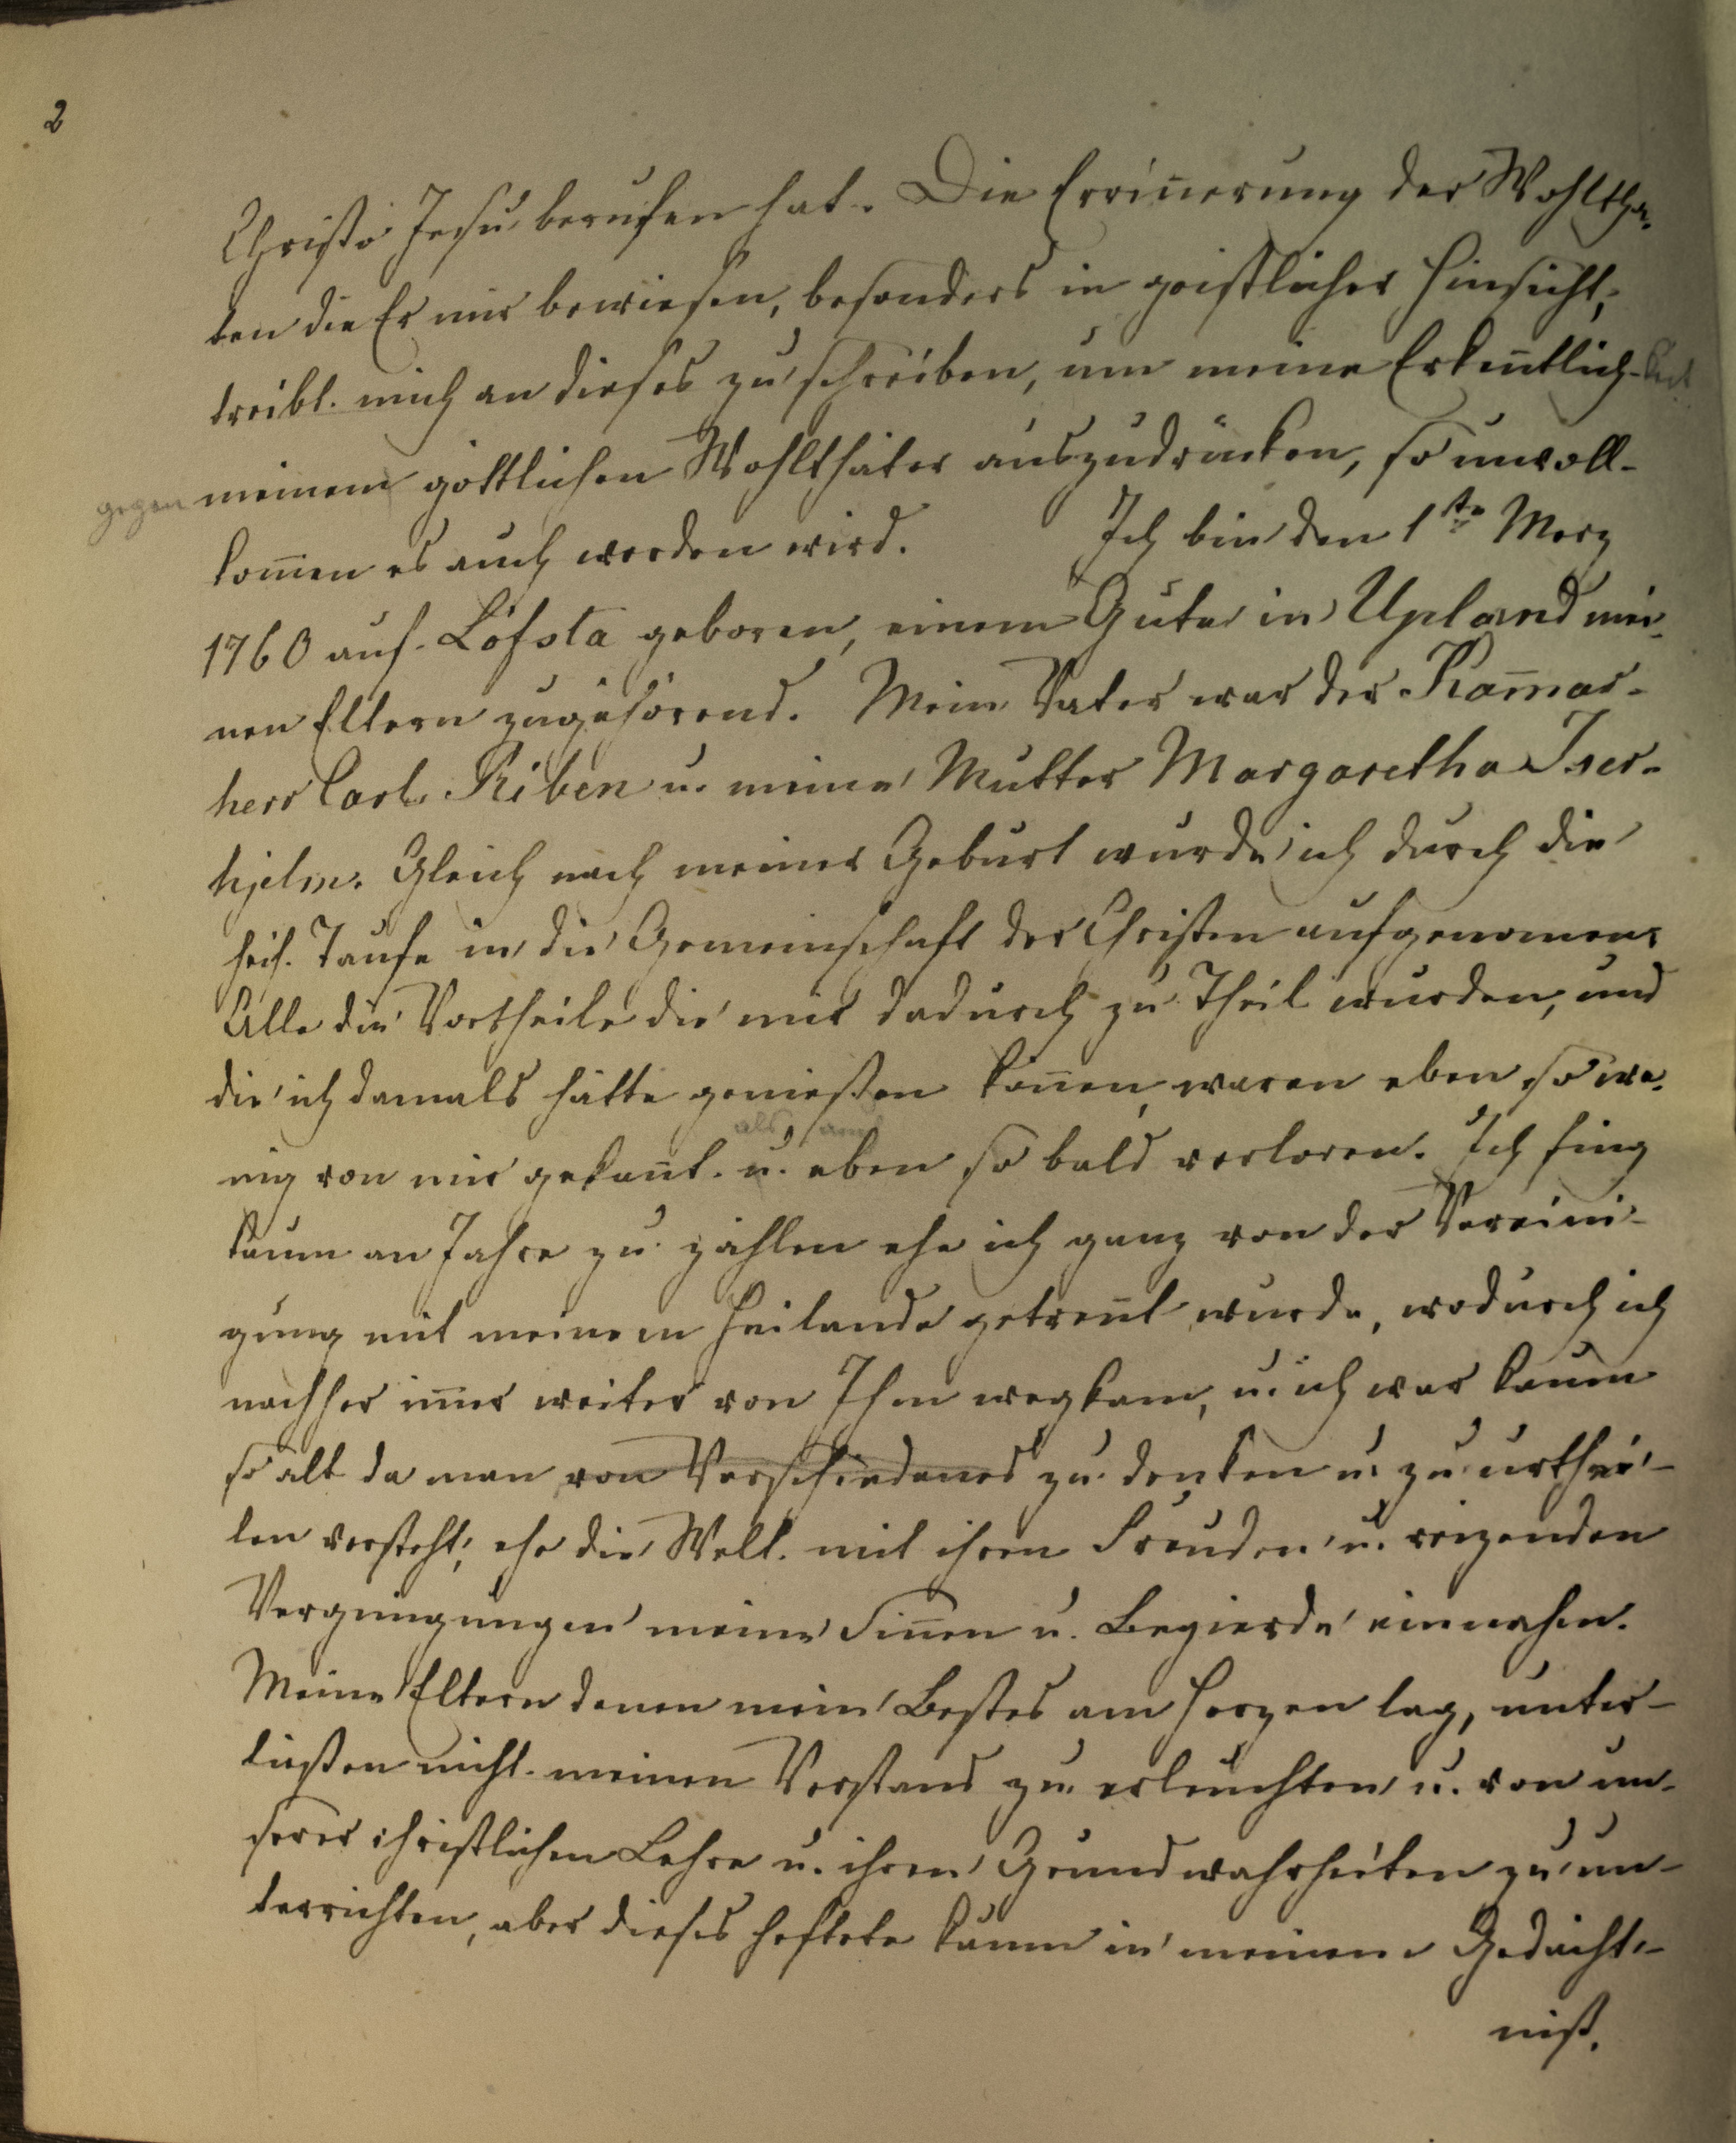 2
Christo Jesu berufen hat. Die Erriñerung der Wohltha-
ten die Er mir bewiesen, besonders in geistlicher Hinsicht,
treibt mich an dieses zu schreiben, um meine Erkeñtlich-keit
gegen meinem göttlichen Wohlthäter auszudrücken, so unvoll-
kom̄en es auch werden wird. Ich bin den 1ten Merz
1760 auf Löfsta geboren, einem Gute in Upland mei-
nen Eltern zugehörend. Mein Vater war der Kam̄ar-
herr Carl Riben u. meine Mutter Margaretha Iser-
hjelm. Gleich nach meiner Geburt wurde ich durch die
heil. Taufe in die Gemeinschaft der Christen aufgenomen.
Alle die Vortheile die mir dadurch zu Theil wurden, und
die ich damals hätte genießen köñen, waren eben so we-
als auch
nig von mir gekañt u. eben so bald verloren. Ich fing
kaum an Jahre zu zählen ehe ich ganz von der Vereini-
gung mit meinem Heilande getreñt wurde, wodurch ich
nachher im̄er weiter von Ihm wegkam, u. ich war kaum
so alt da man von Verschiedenes zu denken u. zu urthei-
len versteht, ehe die Welt mit ihren Freuden u. reizenden
Vergnügungen meine Siñen u. Begierde einnahm.
Meine Eltern denen mein Bestes am Herzen lag, unter-
ließen nicht meinen Verstand zu erleuchten u. von un-
serer christlichen Lehre u. ihren Grundwahrheiten zu un-
terrichten, aber dieses heftete kaum in meinem Gedächt-
niß.